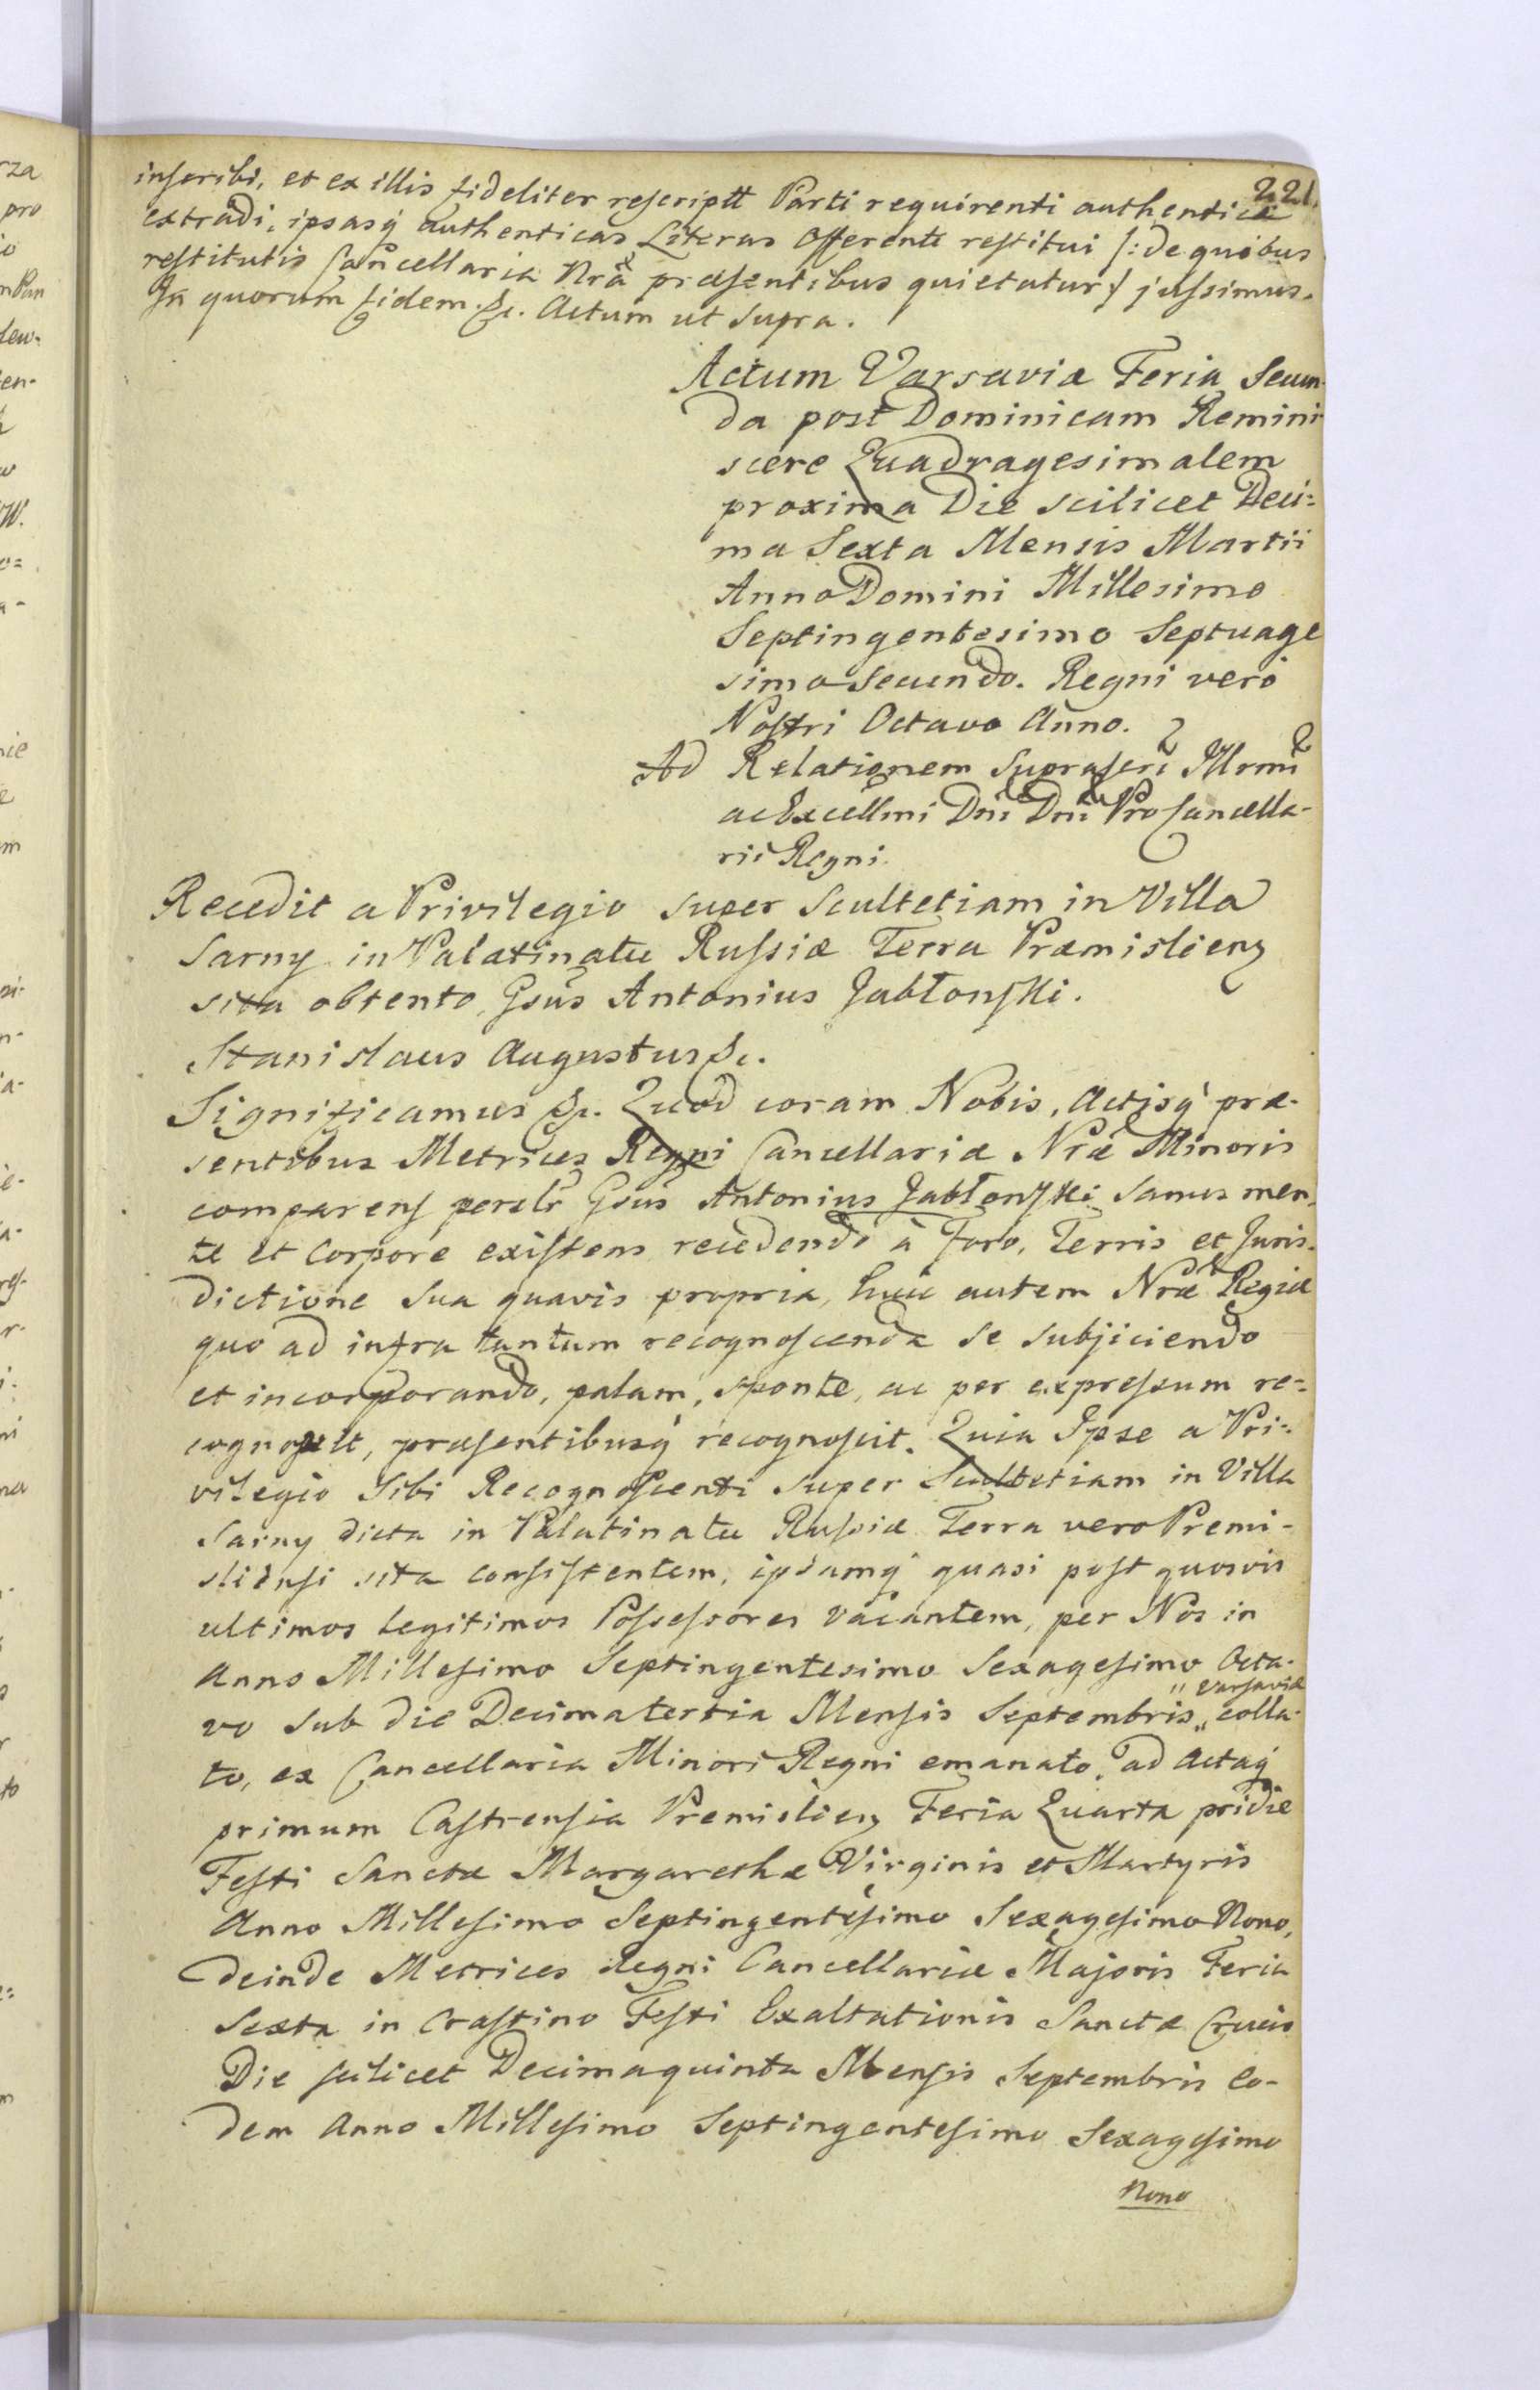 221.
inscribi, et ex illis fideliter rescriptt Parti requirenti authentice
extradi, ipsasq́ authenticas Literas Offerenti restitui /: de quibus
restitutis Cancellaria Nra præsentibus quietatur :/ jussimus.
In quorum fidem &c. Actum ut supra.
Actum Varsaviæ Feria Secun-
da post Dominicam Remini-
scere Quadragesimalem
proxima Die scilicet Deci-
ma Sexta Mensis Martii
Anno Domini Millesimo
Septingentesimo Septuage
simo Secundo. Regni vero
Nostri Octavo Anno.
Ad Relationem Suprascri Illrmi
ac Excellmi Dni Dni Pro Cancella-
rii Regni.
Recedit a Privilegio super Scultetiam in Villa
Sarny in Palatinatu Russiæ Terra Præmislien
sita obtento, Gsus Antonius Jabłonski.
Stanislaus Augustus &c.
Significamus &c. Quod coram Nobis, Actisq́ præ-
sentibus Metrices Regni Cancellariæ Nræ Minoris
comparens persltr Gsus Antonius Jabłonski sanus men-
te et Corpore existens recedendo à Foro, Terris et Juris-
dictione sua quavis propria, huic autem Nræ Regiæ
quo ad infra tantum recognoscenda se subjiciendo
et incorporando, palam, sponte, ac per expressum re-
cognovit, præsentibusq́ recognoscit. Quia Ipse a Pri-
vilegio Sibi Recognoscenti super Scultetiam in Villa
Sarny dicta in Palatinatu Russiæ Terra vero Premi-
sliensi sita consistentem, ipsamq́ quasi post quosvis
ultimos legitimos Possessores vacantem, per Nos in
Anno Millesimo Septingentesimo Sexagesimo Octa-
vo sub die Decimatertia Mensis Septembris " Varsaviæ " colla-
to, ex Cancellaria Minori Regni emanato, ad Actaq́
primum Castrensia Premislien Feria Quarta pridie
Festi Sanctæ Margarethæ Virginis et Martyris
Anno Millesimo Septingentesimo Sexagesimo Nono,
deinde Metrices Regni Cancellariæ Majoris Feria
Sexta in Crastino Festi Exaltationis Sanctæ Crucis
Die scilicet Decimaquinta Mensis Septembris Eo-
dem Anno Millesimo Septingentesimo Sexagesimo
Nono